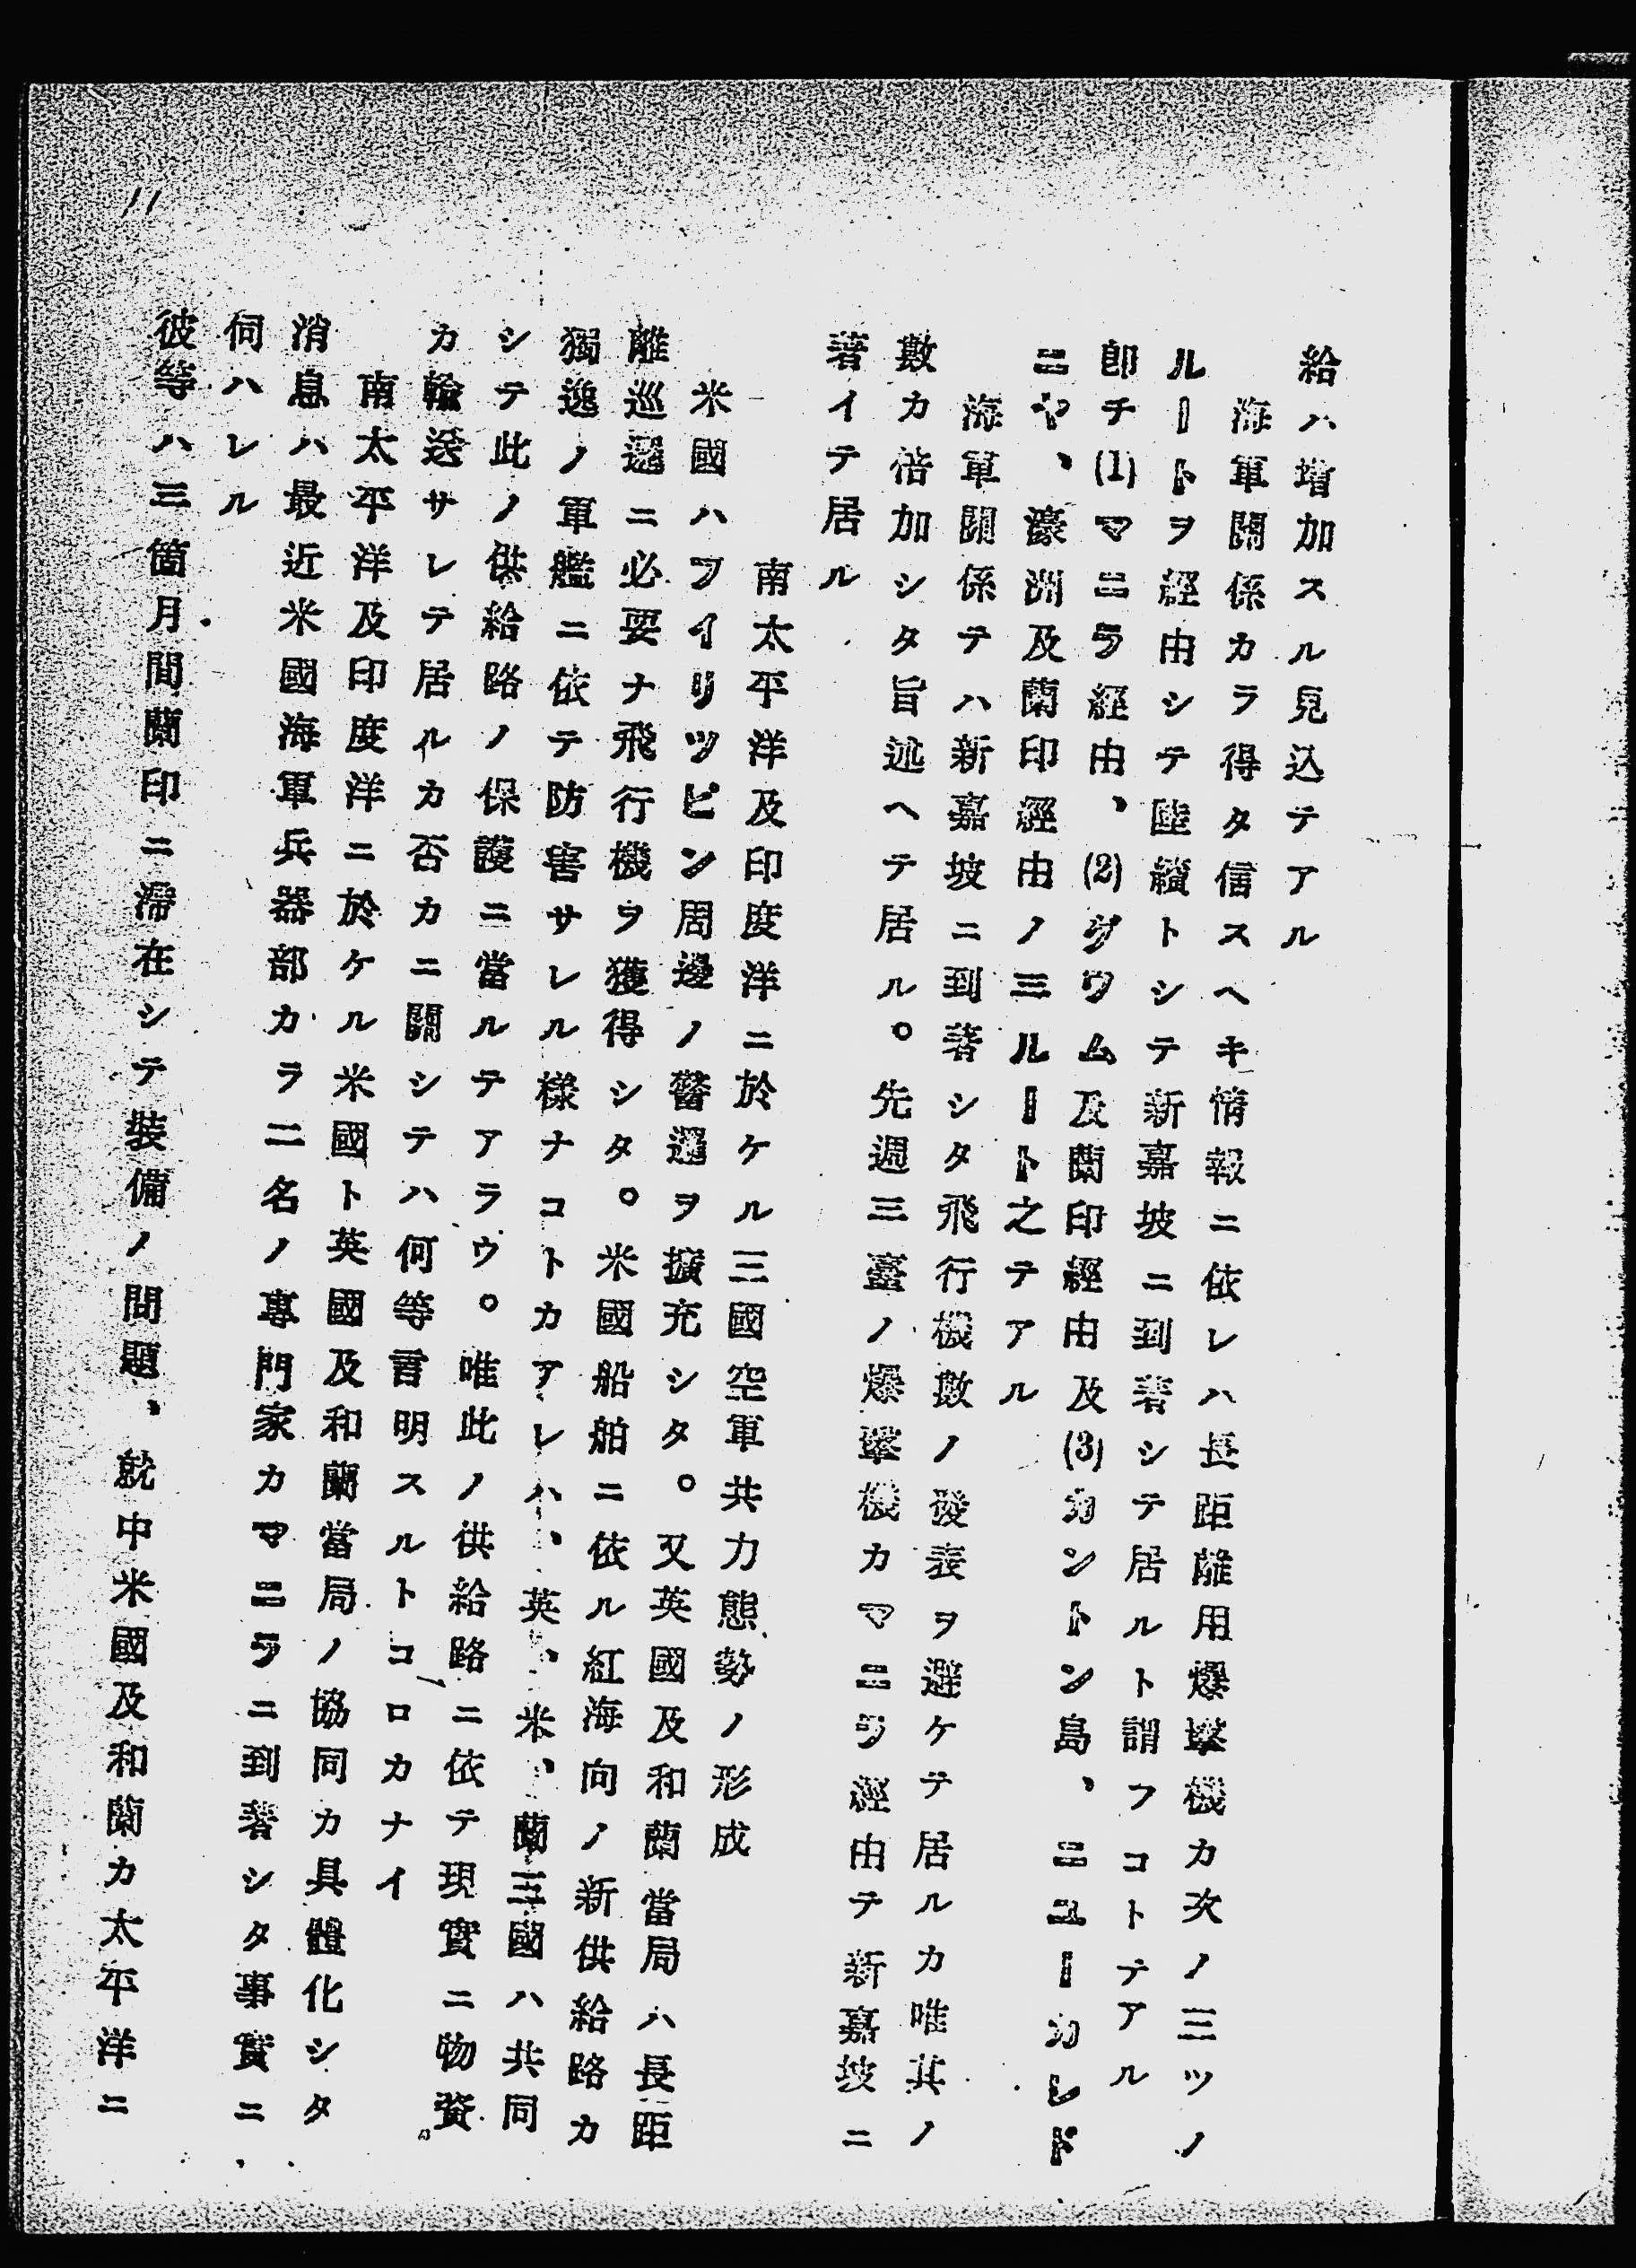 給ハ増加スル見込テアル
海軍關係カラ得タ信スヘキ情報ニ依レハ長距離用爆撃機カ次ノ三ツノ
ルートヲ經由シテ陸續トシテ新嘉坡ニ到著シテ居ルト謂フコトテアル
卽チ(1)マニラ經由、(2)グワム及蘭印經由及(3)カントン島、ニユーカレド
ニヤ、濠洲及蘭印經由ノ三ルート之テアル
海軍關係テハ新嘉坡ニ到著シタ飛行機數ノ發表ヲ避ケテ居ルカ唯其ノ
數カ倍加シタ旨述ヘテ居ル。先週三臺ノ爆撃機カマニラ經由テ新嘉坡ニ
著イテ居ル
南太平洋及印度洋ニ於ケル三國空軍共力態勢ノ形成
米國ハフイリツピン周邊ノ警邏ヲ擴充シタ。又英國及和蘭當局ハ長距
離巡邏ニ必要ナ飛行機ヲ獲得シタ。米國船舶ニ依ル紅海向ノ新供給路カ
獨逸ノ軍艦ニ依テ防害サレル樣ナコトカアレハ、英、米、蘭三國ハ共同
シテ此ノ供給路ノ保護ニ當ルテアラウ。唯此ノ供給路ニ依テ現實ニ物資
カ輸送サレテ居ルカ否カニ關シテハ何等言明スルトコロカナイ
南太平洋及印度洋ニ於ケル米國ト英國及和蘭當局ノ協同カ具體化シタ
消息ハ最近米國海軍兵器部カラ二名ノ專門家カマニラニ到著シタ事實ニ
伺ハレル
彼等ハ三箇月間蘭印ニ滯在シテ裝備ノ問題、就中米國及和蘭カ太平洋ニ
11